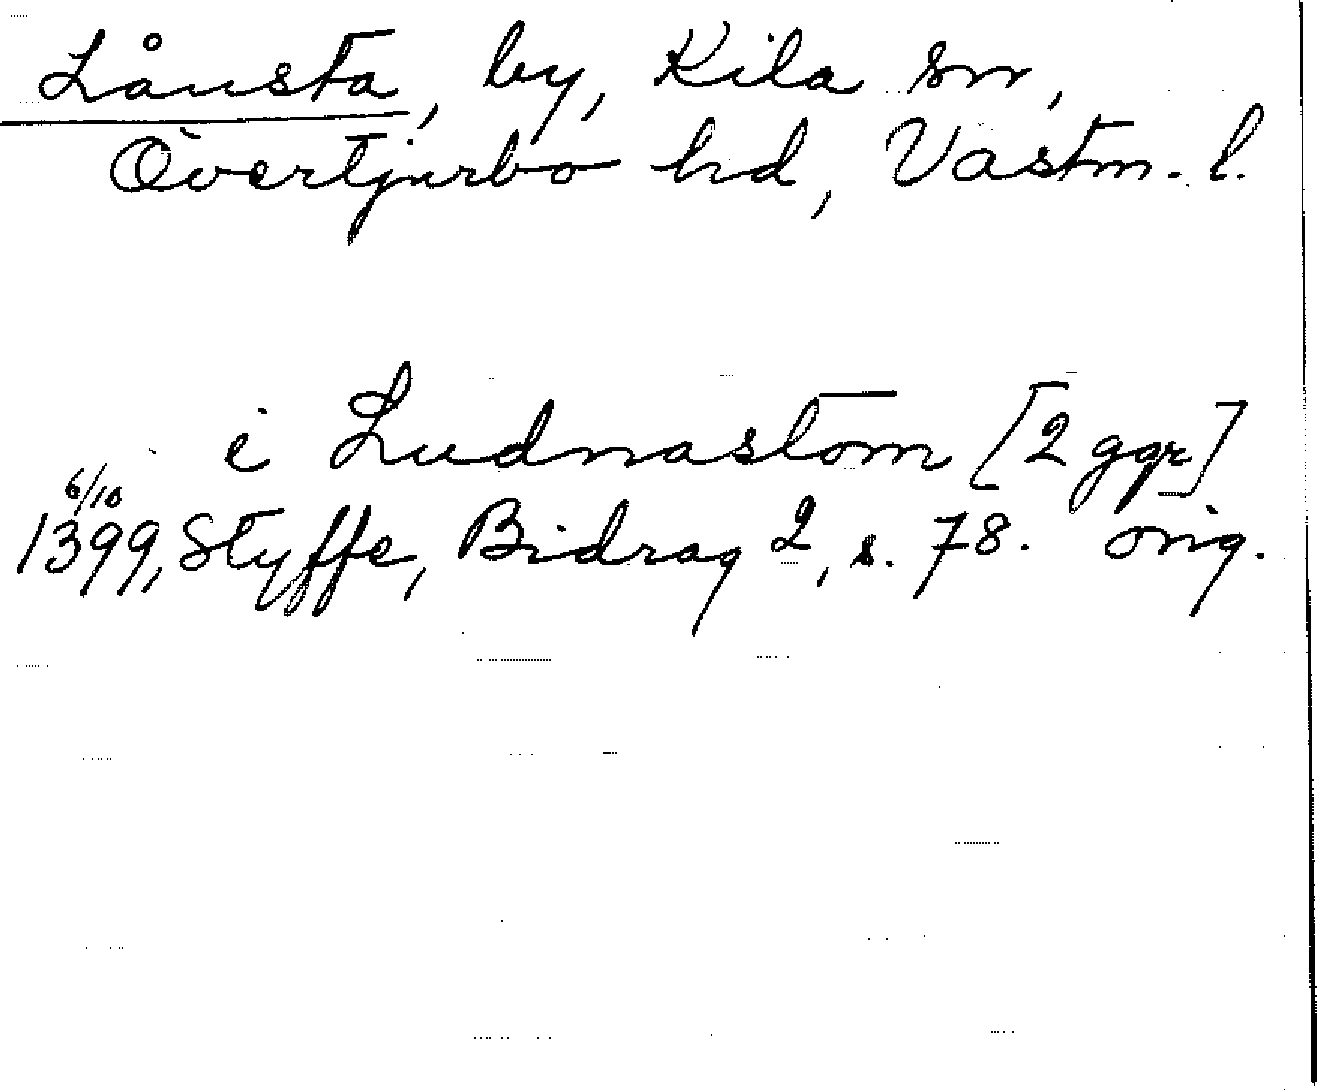 Lånsta, by, Kila sn,
Övertjurbo hd, Västm. l.
i Ludnastom [2 ggr]
6/10
1399, Styffe, Bidrag 2, s. 78. orig.